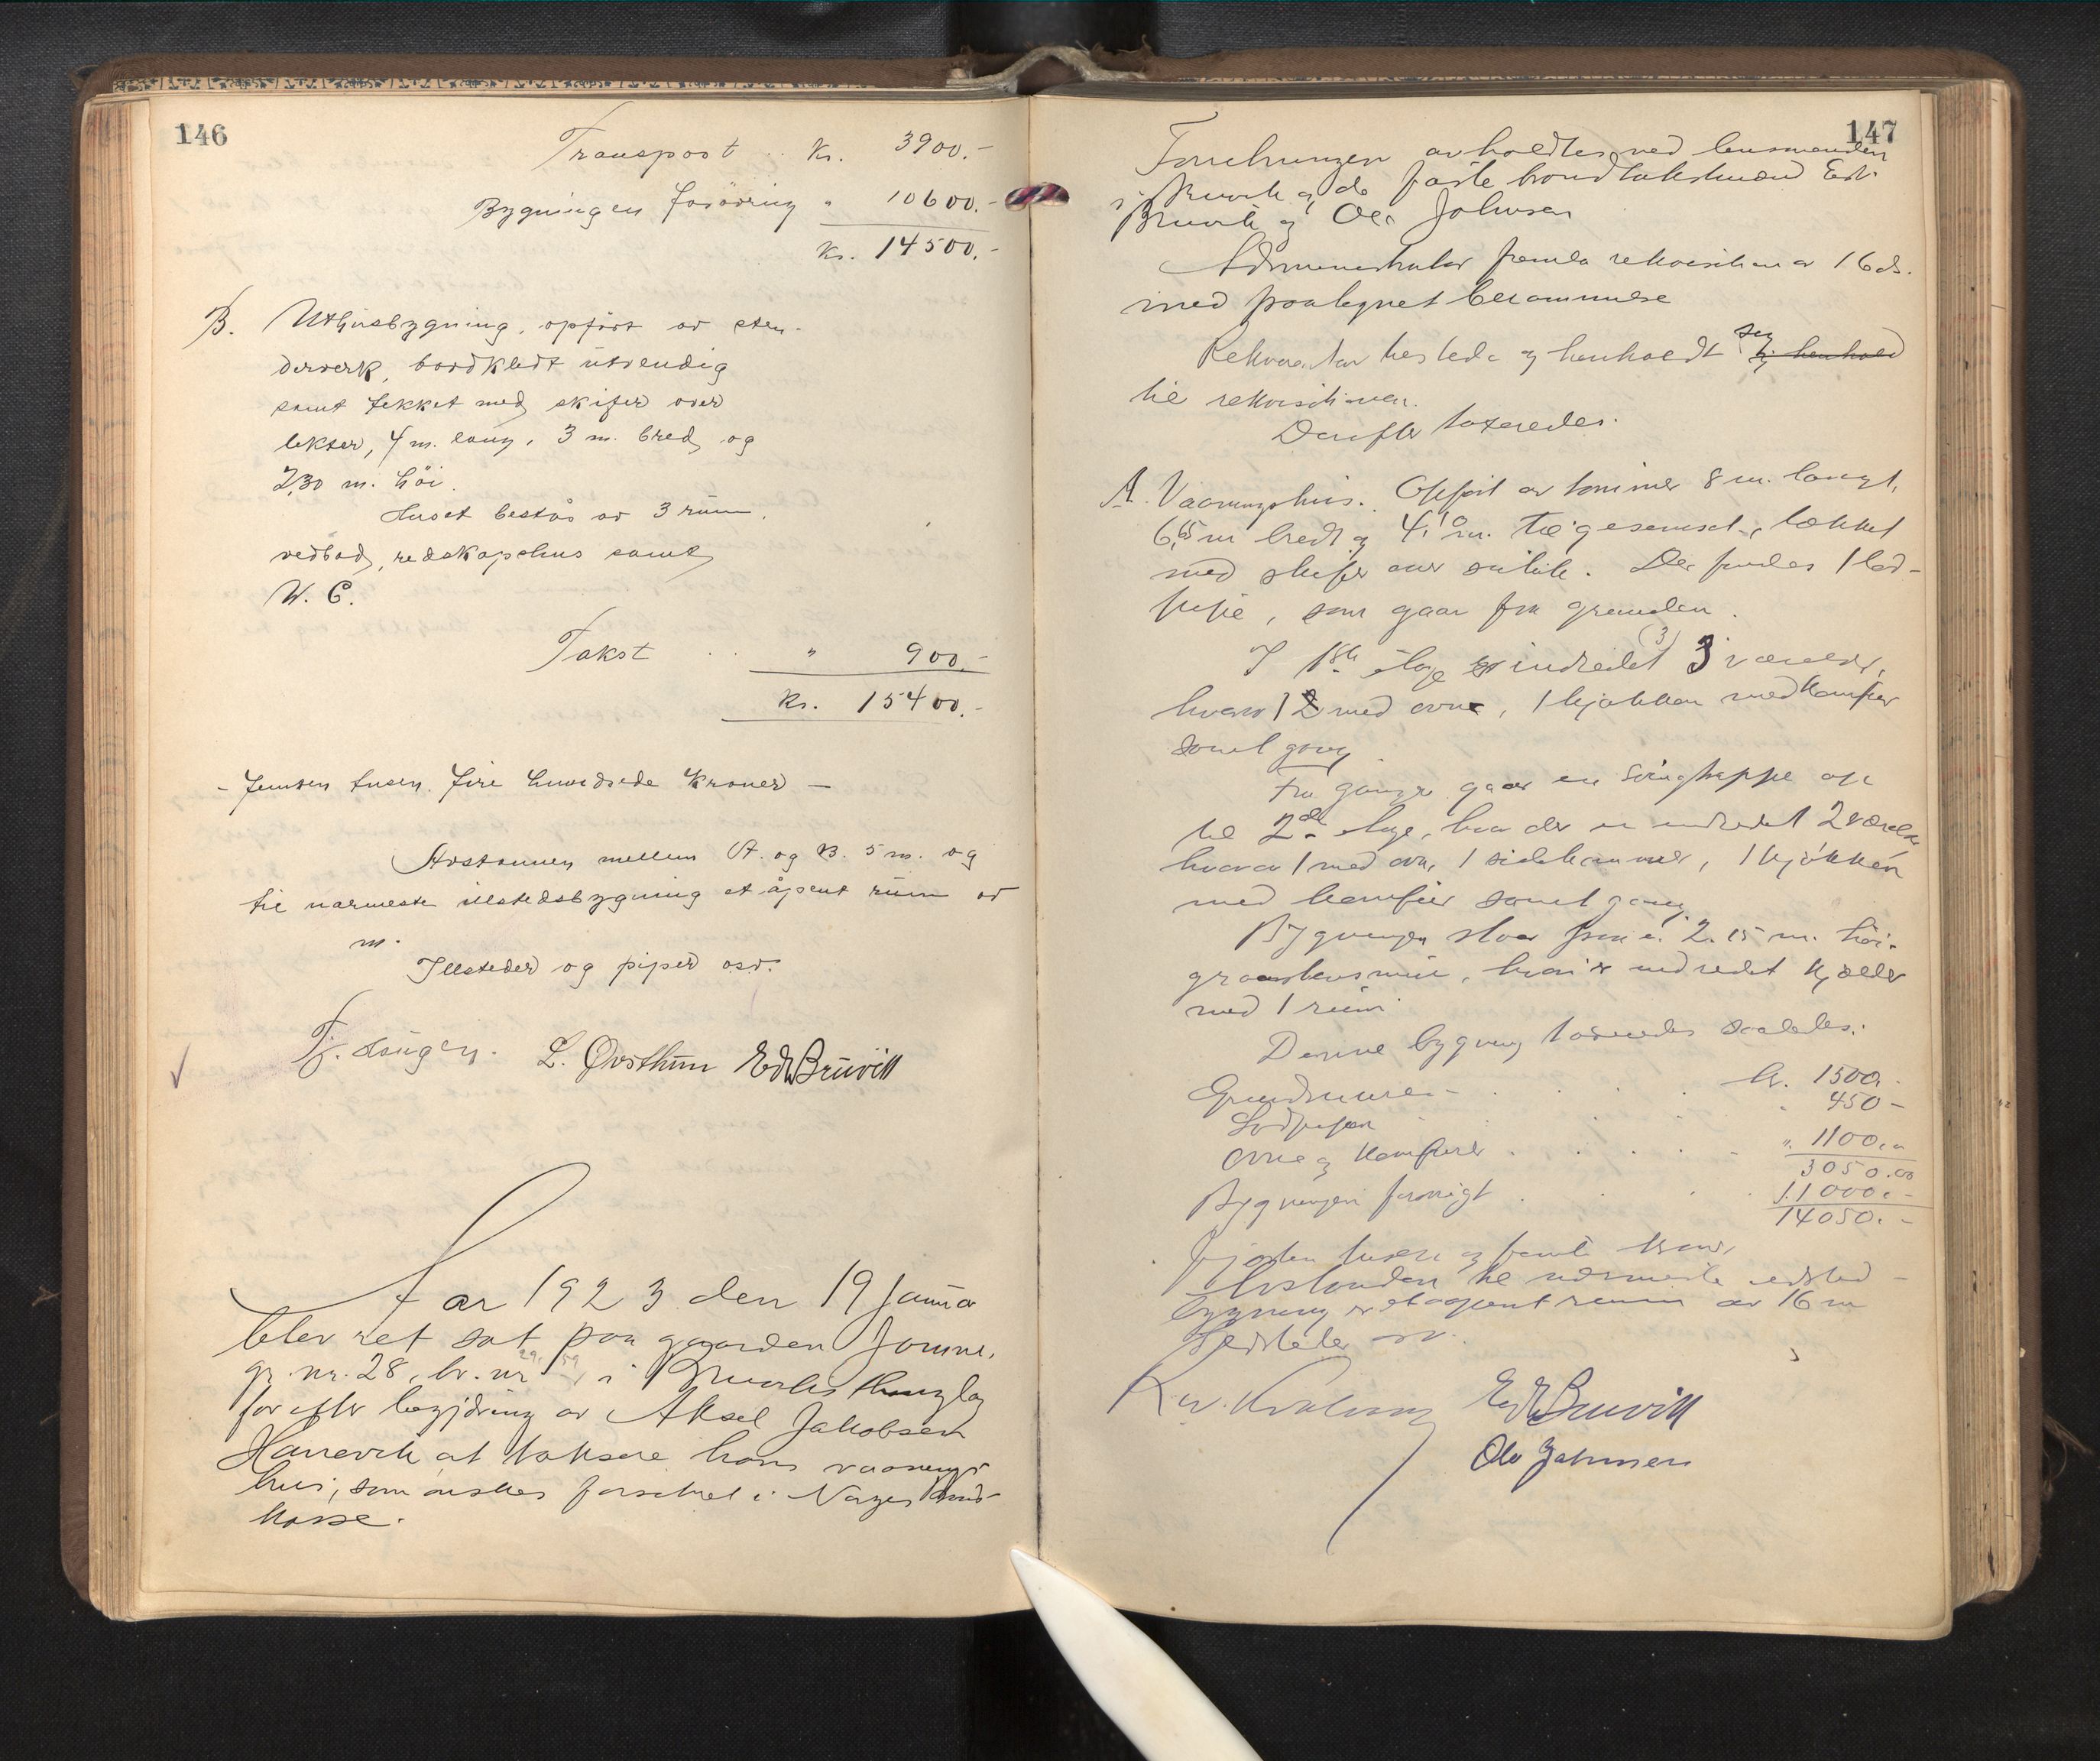 146
Transport .. Kr. 3900.-
Bygningen forövrig " 10600.-
Kr. 14500.-
B. Uthusbygning, opfört av sten-
derverk, bordkledt utvendig
samt tekket med skifer over
lekter, 4 m. lang, 3 m. bred og
2,30 m. höi.
Huset består av 3 rum,
vedbod, redskapshus samt
W. C.
Takst .. " 900.-
Kr. 15400.-
- Femten tusen fire hundrede kroner -
Avstanden mellem A. og B. 5 m. og
til nærmeste ildstedsbygning et åpent rum av
m.
Ildsteder og piper osv.
L. Øvsthun Edv Bruvik
Aar 1923 den 19 januar
blev ret sat paa gaarden
gr. nr. 28, br. nr. 29, 59, i Bruviks thinglag
for efter begjæring av Aksel Jakobsen
at taksere hans vaanings-
hus, som ønskes forsikret i Norges Brand-
kasse.
147
Forretningen avholdtes ved lensmanden
i Bruvik og de faste brandtakstmænd Edv.
Bruvik og Ola Johnsen
Administrator fremla rekvisition av 16 ds.
med paategnet berammelse
Rekvirenten tilstede og henholdt seg til henhold
til rekvisitionen.
Derefter taxeredes:
A. Vaaningshus. Opført av tømmer 8 m. langt,
6,65 m bredt og 4,10 m. til gesimset, tækket
med skifer over sutak. Der findes 1 lod-
pipe, som gaar fra grunden.
I 1ste etage er indredet (3) 3 værelser,
hvorav 1 2 med ovne, 1 kjøkken med komfur
samt gang
Fra gangen gaar en svingtrappe op
til 2den etage, hvor der er indredet 2 værelser
hvorav 1 med ovn, 1 sidekammer, 1 kjøkken
med komfur samt gang.
Bygningen staar paa en 2.15 m. høi
graastensmur, hvori er indredet kjælder
med 1 rum
Denne bygning taxeredes saaledes:
Grundmuren . . . . kr. 1500.-
Lodpipen . . . " 450-
Ovne og komfurer . . . . . " 1100.-
3050.00
Bygningen forøvrigt . . . 11000.-
14050.-
Fjorten tusen og femti kroner.
Avstanden til nærmeste ildsted-
bygning er et aapent rum av 16 m
Ildsteder osv.
Edv Bruvik
Ola Johnsen